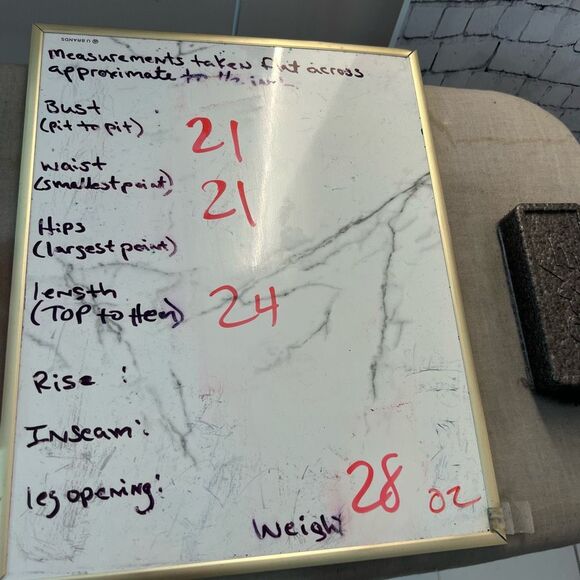 U BRANDS
measurements taken flat across
approximate to the in
Bust
(pit to pit) 21
waist
(smallest point) 21
Hips
(largest point)
length
(TOP to Hem) 24
Rise :
Inseam:
leg opening:
Weight 28 oz